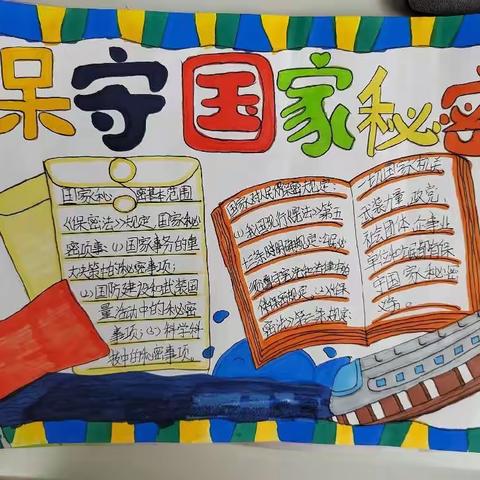 保守国家秘密
国家秘 密基本范围
《保密法》规定,国家秘
密项事:(1)国家事务的重
大决策中的秘密事项;
(2)国防建设和武装国
量活动中的秘密
事项;(3)科学科
技中的秘密事项。
国家对人民保密规定:
(1)我国现行《宪法》第五
十三条明确规定:
密法》第三条规定
一切国家机关
武装力量、政党、
社会团体、企事业
单位和公民都有保
守国家秘密
义务。